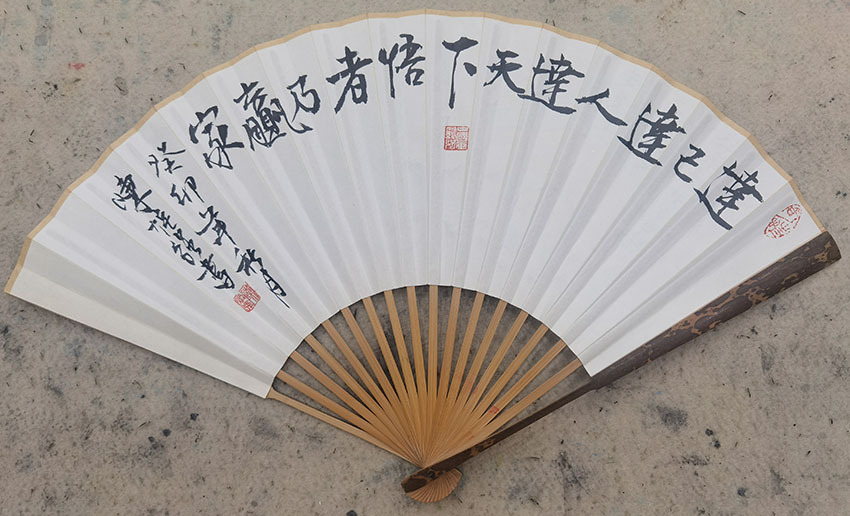 達己達人達天下悟者乃贏家
癸卯年秋月
陳